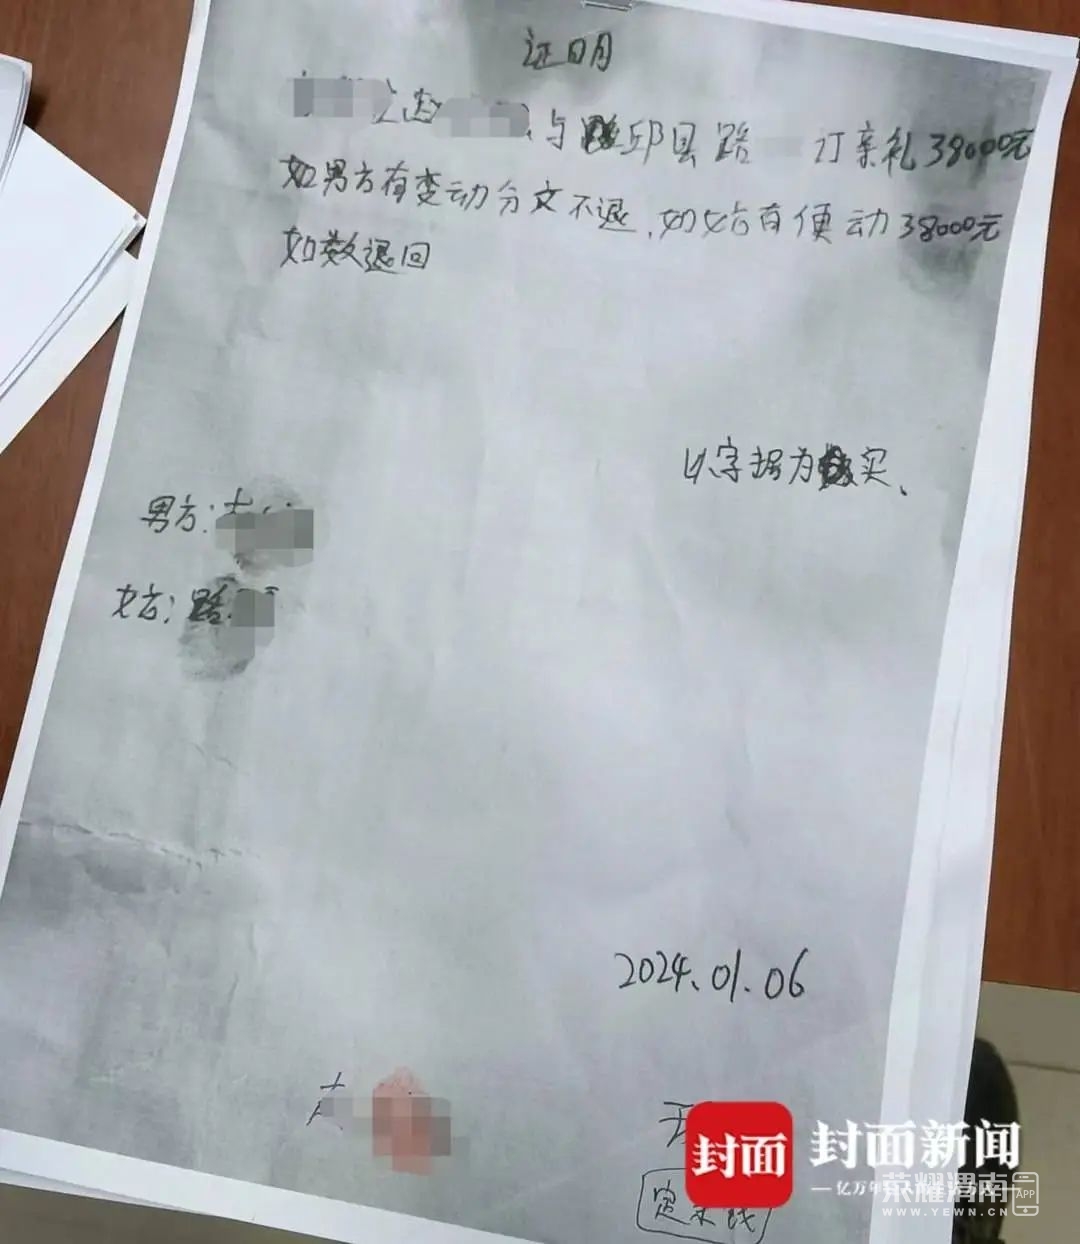 证明
与邱县路 订亲礼38000元
如男方有变动分文不退.如女方有便动38000元
如数退回
以字据为实、
男方:
女方:路
2024.01.06
封面
封面新闻
荣耀渭南
APP
WWW.YEWN.CN